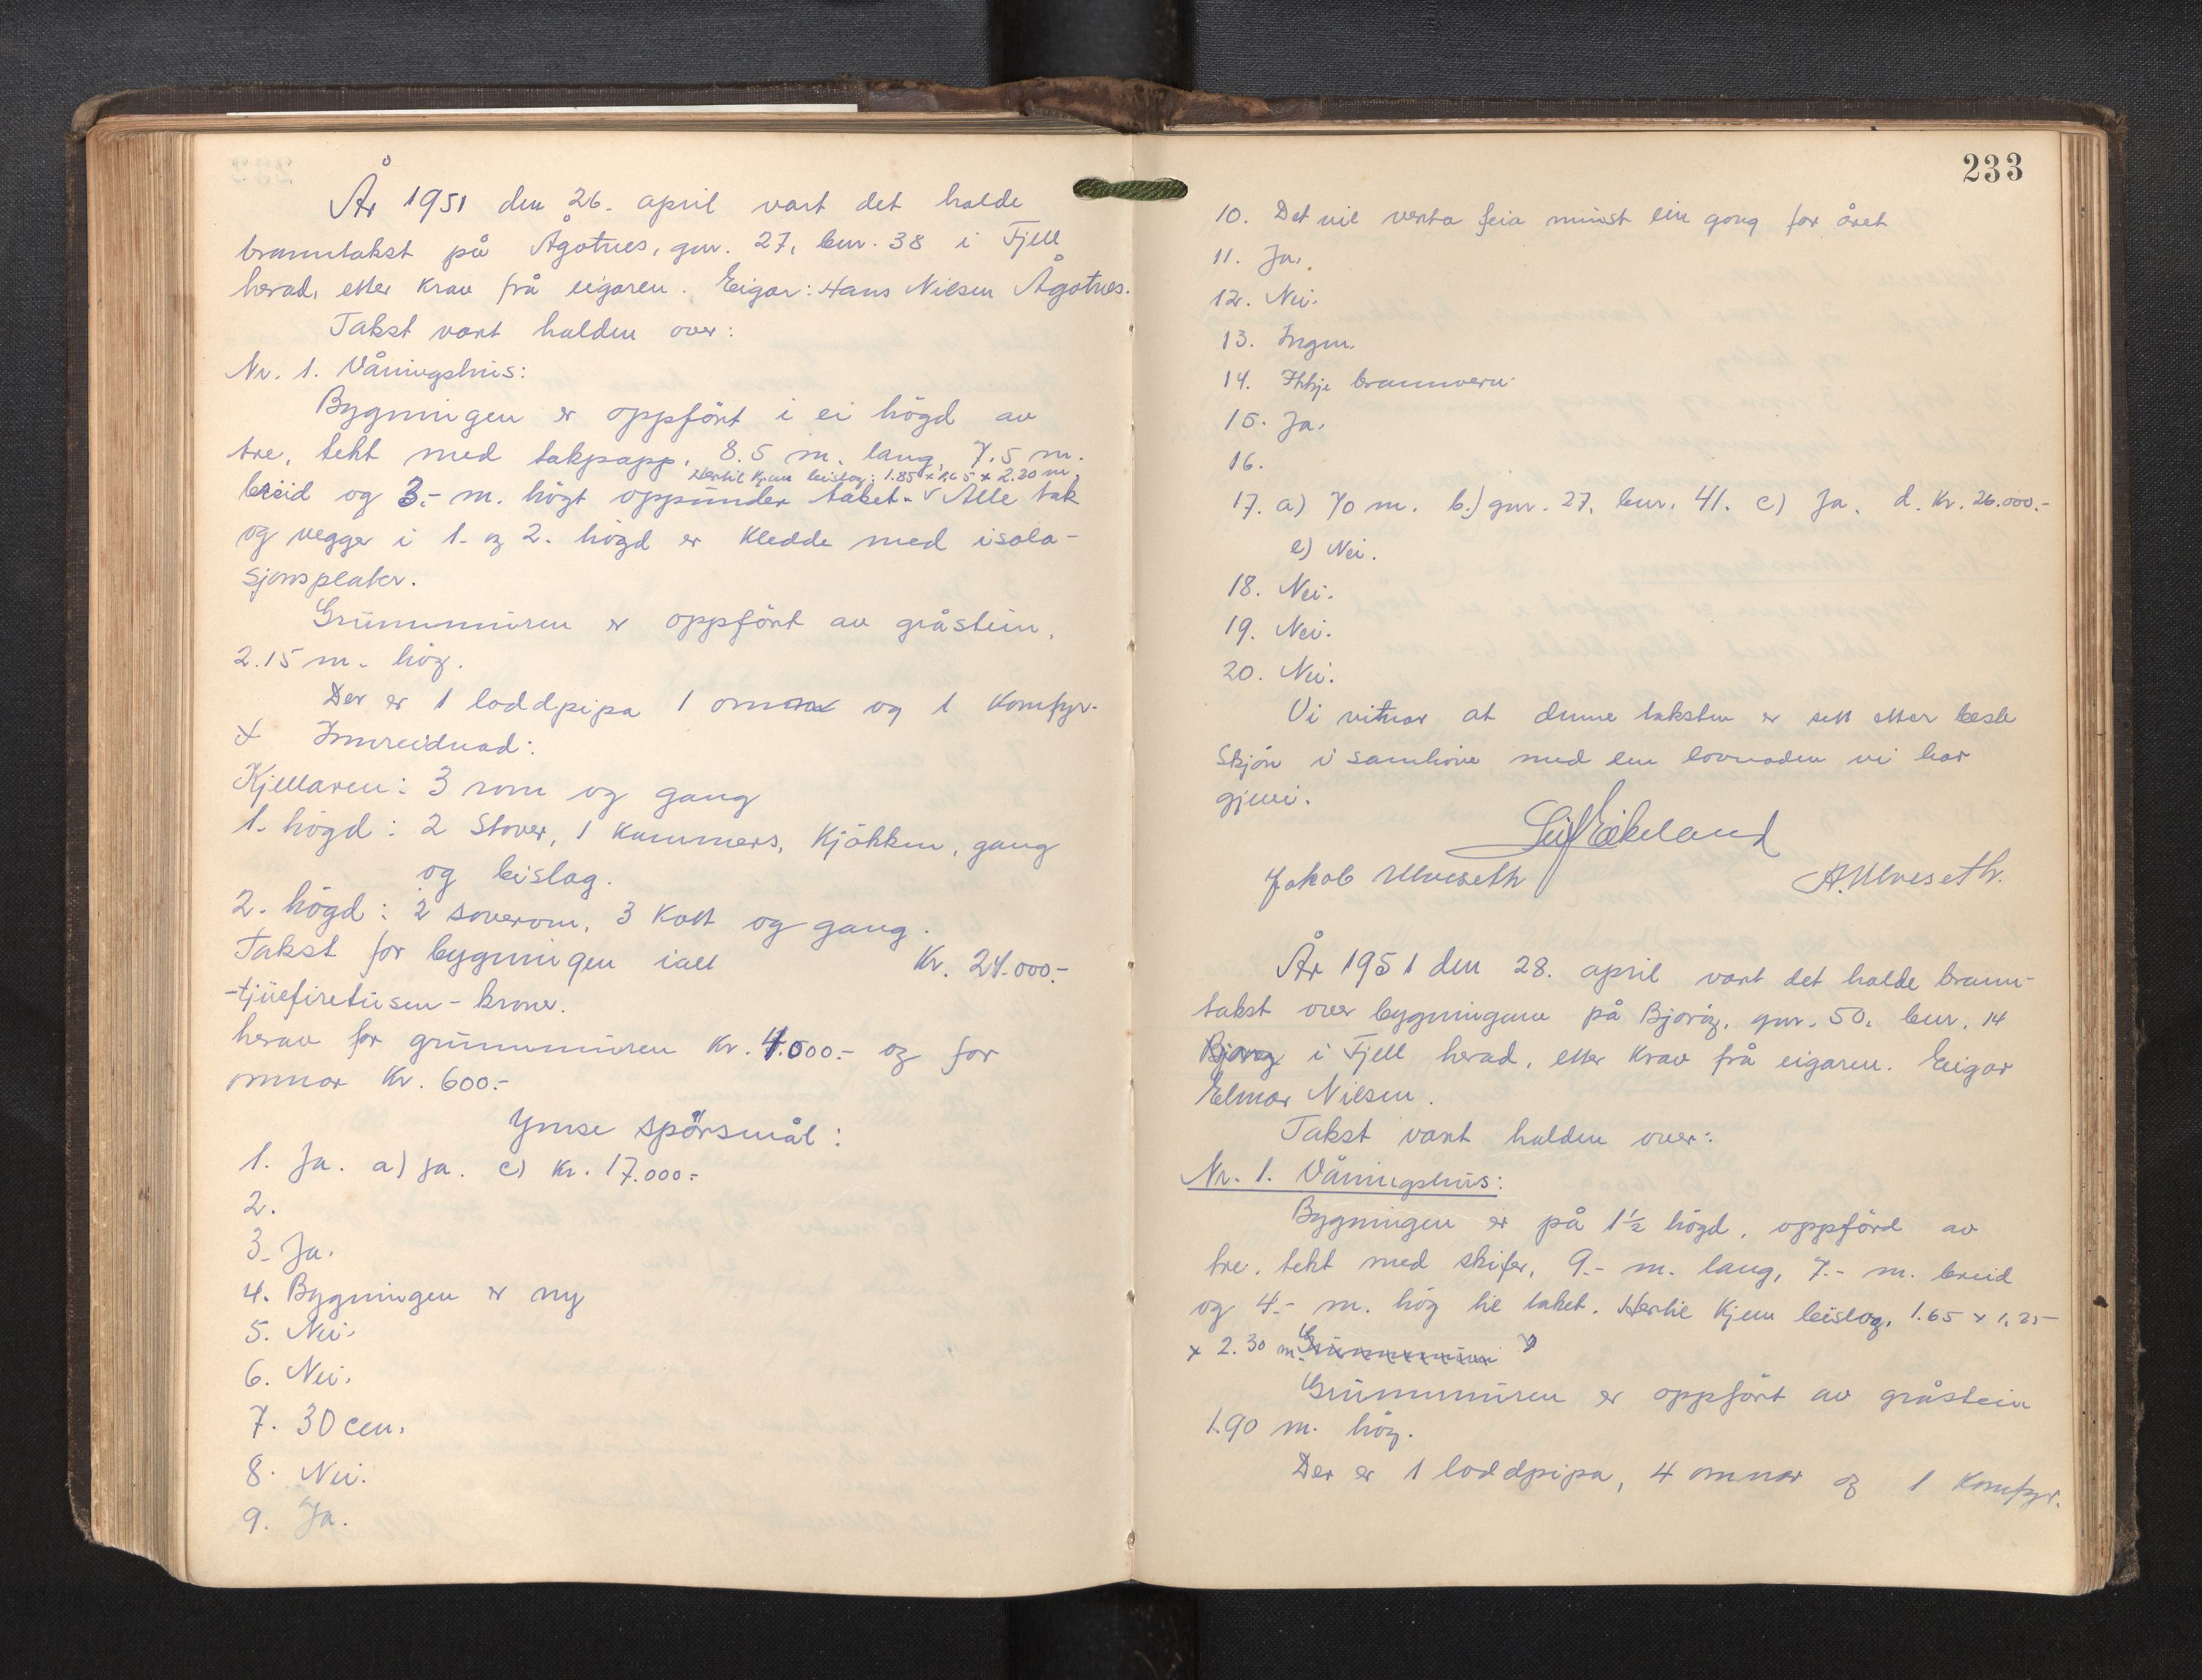 År 1951 den 26. april vart det halde
branntakst på Ågotnes, gnr. 27, bnr. 38 i Fjell
herad, etter krav frå eigaren. Eigar: Hans Nilsen Ågotnes.
Takst vart halden over:
Nr. 1. Våningshus:
Bygningen er oppfört i ei högd av
tre, tekt med takpapp, 8.5 m. lang, 7.5 m.
Hertil kjem bislag: 1.85 x 1.65 x 2.20 m.
breid og 3.- m. högt oppunder taket. v Alle tak
og vegger i 1. og 2. högd er kledde med isola-
sjonsplater.
Grunnmuren er oppfört av gråstein,
2.15 m. hög.
Der er 1 loddpipa 1 omn og 1 komfyr.
x Innreidnad:
Kjellaren: 3 rom og gang
1. högd: 2 stover, 1 kammers, kjökken, gang
og bislag.
2. högd: 2 soverom, 3 kott og gang.
Takst for bygningen ialt Kr. 24.000.-
-tjuefiretusen- kroner.
herav for grunnmuren kr. 4.000.- og for
omnar kr. 600.-
Ymse spörsmål:
1. Ja. a) ja. c) kr. 17.000.-
2.
3. Ja.
4. Bygningen er ny
5. Nei.
6. Nei.
7. 30 cm.
8. Nei.
9. Ja.
233
10. Det vil verta feia minst ein gong for året
11. Ja.
12. Nei.
13. Ingen.
14. Ikkje brannvern.
15. Ja.
16.
17. a) 70 m. b.) gnr. 27, bnr. 41. c) Ja. d. kr. 26.000.-
e) Nei.
18. Nei.
19. Nei.
20. Nei.
Vi vitnar at denne taksten er sett etter beste
skjön i samhöve med den lovnaden vi har
gjevi.
Leif Eikeland
Jakob Ulveseth A. Ulveseth.
År 1951 den 28. april vart det halde brann-
takst over bygningane på Bjoröy, gnr. 50, bnr. 14
i Fjell herad, etter krav frå eigaren. Eigar
Elmar Nilsen.
Takst vart halden over:
Nr. 1. Våningshus:
Bygningen er på 1½ högd, oppförd av
tre, tekt med skifer, 9.- m. lang, 7.- m. breid
og 4.- m. hög til taket. Hertil kjem bislag, 1.65 x 1.25
x 2.30 m. Grunnmuren
Grunnmuren er oppfört av gråstein
1.90 m. hög.
Der er 1 loddpipa, 4 omnar og 1 komfyr.